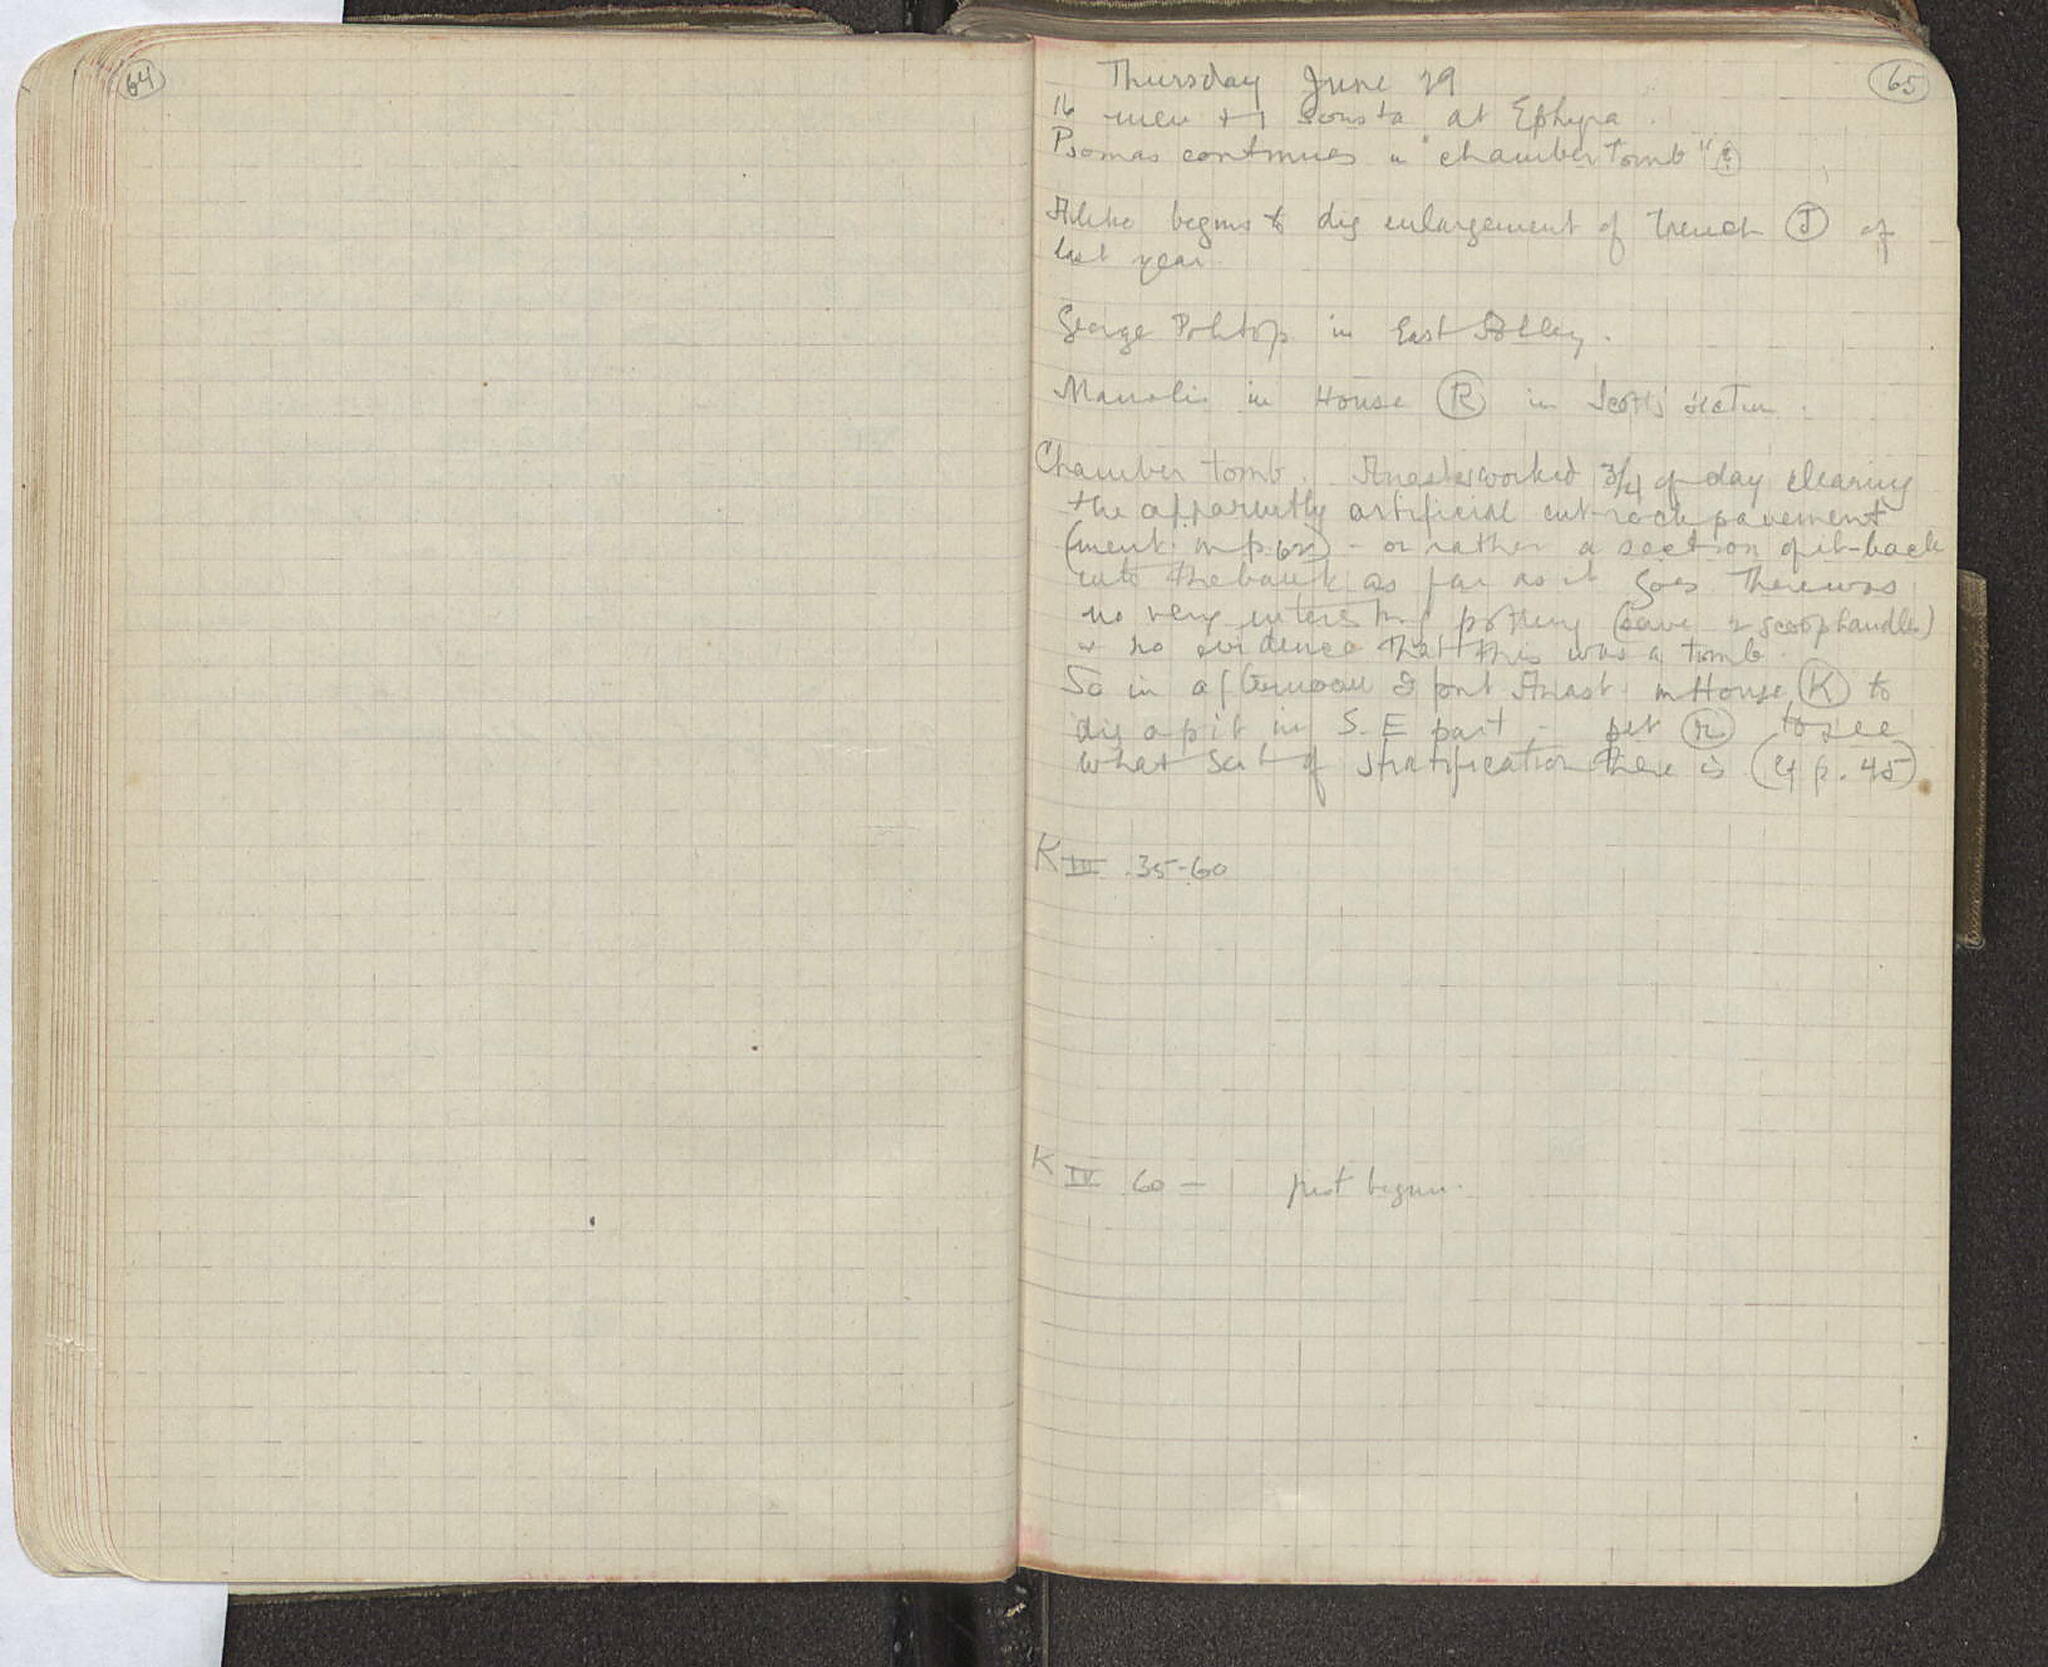 64
65
Thursday June 29
16 men + 1 sousta at Ephyra.
Psomas continues in "chamber tomb" (?)
begins to dig enlargement of trench (J) of
last year.
George in East Alley.
Manolis in House (R) in Scott's section.
Chamber tomb. worked 3/4 of day clearing
the apparently artificial cut-rock pavement
(ment. on p. ) - or rather a section of it - back
into the bank as far as it goes There was
no very interesting pottery (save 2 scoop handles)
+ no evidence that this was a tomb.
So in afternoon I put Anast. in House (K) to
dig a pit in S.E part - pit to see
what sort of stratification there is (cf p. 45)
K III 35-60
K IV 60 - just begun.